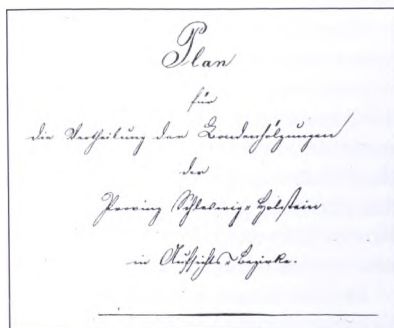 Plan
für
die Vertheilung der Bondenhölzungen
der
Provinz Schleswig-Holstein
in Aufsichts-Bezirke.